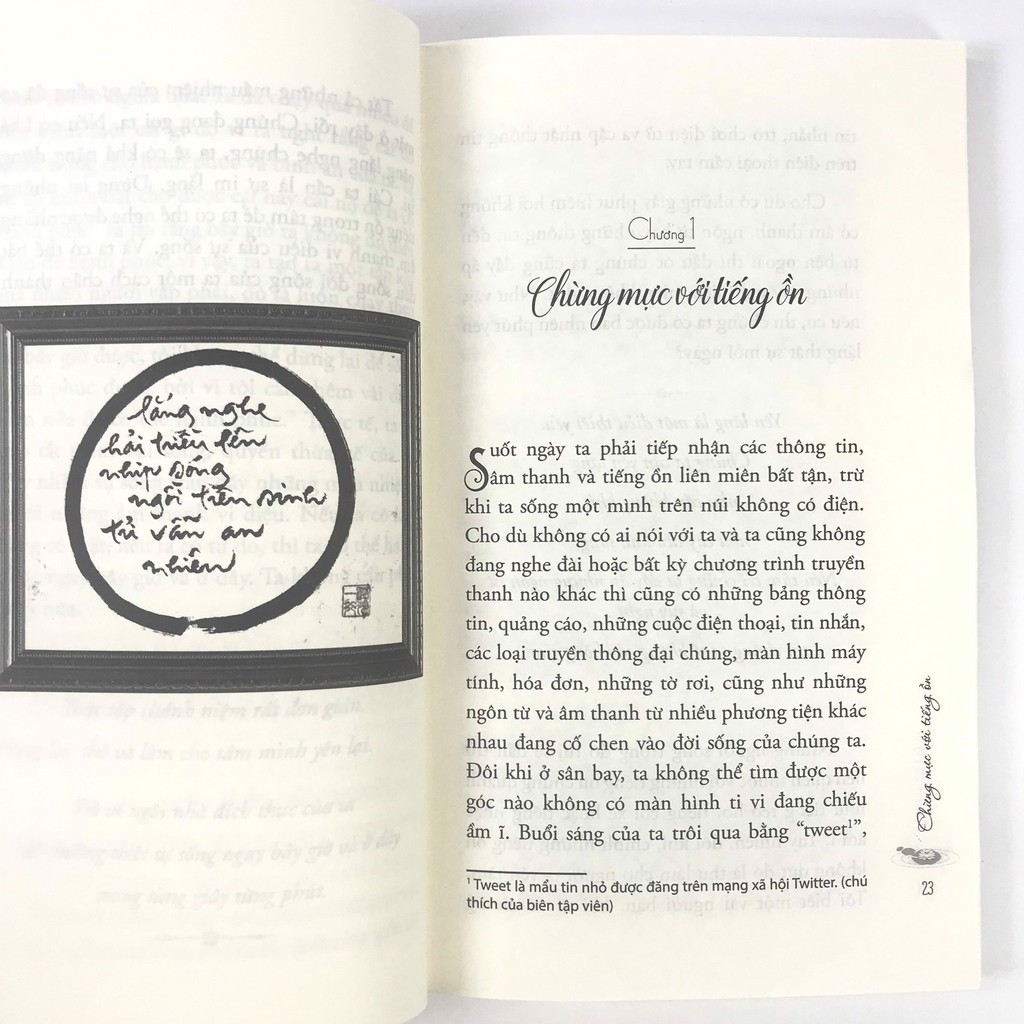 lắng nghe
hải triều lên
nhịp sống
ngồi trên sinh
tử vẫn an
nhiên
Chương 1
Chừng mực với tiếng ồn
Suốt ngày ta phải tiếp nhận các thông tin,
âm thanh và tiếng ồn liên miên bất tận, trừ
khi ta sống một mình trên núi không có điện.
Cho dù không có ai nói với ta và ta cũng không
đang nghe đài hoặc bất kỳ chương trình truyền
thanh nào khác thì cũng có những bảng thông
tin, quảng cáo, những cuộc điện thoại, tin nhắn,
các loại truyền thông đại chúng, màn hình máy
tính, hóa đơn, những tờ rơi, cũng như những
ngôn từ và âm thanh từ nhiều phương tiện khác
nhau đang cố chen vào đời sống của chúng ta.
Đôi khi ở sân bay, ta không thể tìm được một
góc nào không có màn hình ti vi đang chiếu
ầm ĩ. Buổi sáng của ta trôi qua bằng “tweet¹”,
¹ Tweet là mẩu tin nhỏ được đăng trên mạng xã hội Twitter. (chú
thích của biên tập viên)
Chừng mực với tiếng ồn
23